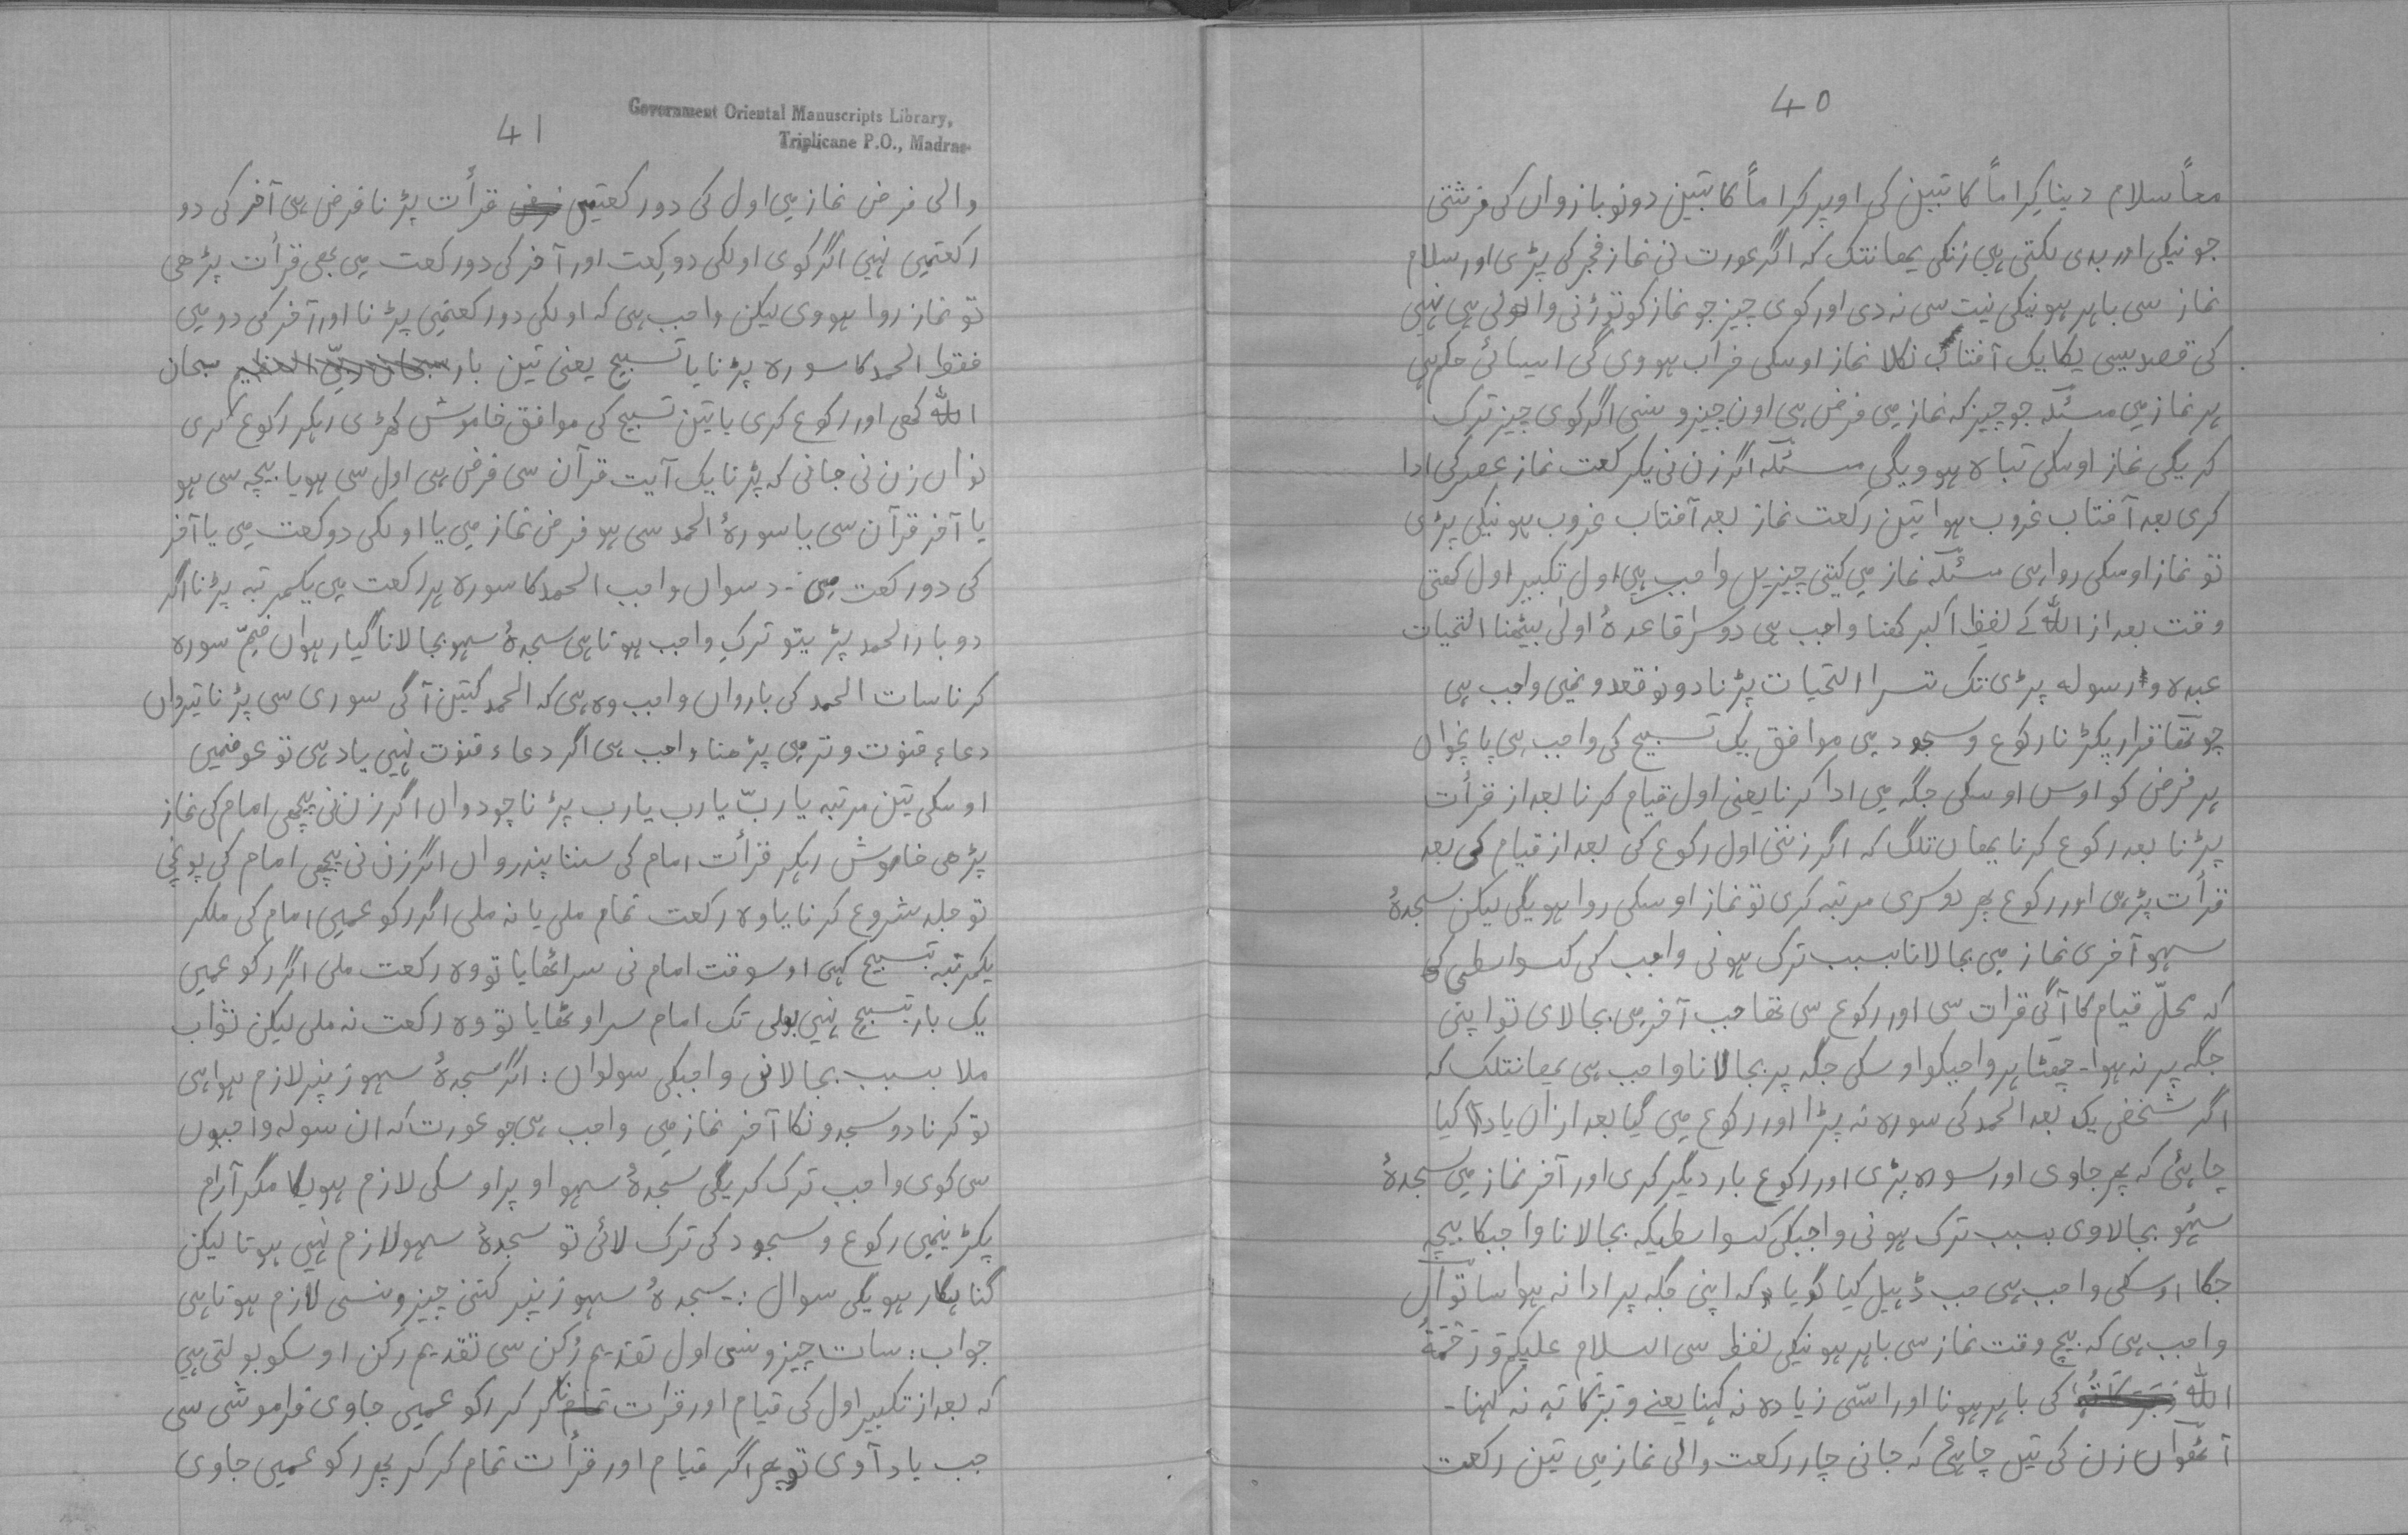 40
معاً سلام دینا کراماً کاتبین کی اوپر کراماً کاتبین دونو بازواں کی فرشتی
جو نیکی اور بدی لکتی ہیں زنکی یہانتک کہ اگر عورت نی نماز فجر کی پڑی اور سلام
نماز سی باہر ہونیکی نیت سی نہ دی اور کوی چیز جو نماز کو توڑنی والوئی ہی نہیں
کی قصدسیی یکایک آفتاب نکلا نماز اوسکی خراب ہووی گی ایسائی حکم ہی
ہر نماز میں مسئلہ جو چیز کہ نماز میں فرض ہی اون چیزونسی اگر کوی چیز ترک
کریگی نماز اوسکی تباہ ہوویگی مسئلہ اگر زن نی یکرکعت نماز عصر کی ادا
کری بعد آفتاب غروب ہوا تین رکعت نماز بعد آفتاب غروب ہونیکی پڑی
تو نماز اوسکی روا ہی مسئلہ نماز میں کیتی چیزیں واجب ہیں اول تکبیر اول کہتی
وقت بعد از اللہ کے لفظ اکبر کہنا واجب ہی دوسرا قاعدۂ اولیٰ بیٹہنا التحیات
عبدہ و رسولہ پڑی تک تسرا التحیات پڑنا دونو قعدونمیں واجب ہی
چوتھا قرار پکڑنا رکوع و سجود میں موافق یک تسبیح کی واجب ہی پانچواں
ہر فرض کو اوس اوسکی جگہ میں ادا کرنا یعنی اول قیام کرنا بعد از قرأت
پڑنا بعد رکوع کرنا یہاں تلگ کہ اگر زننی اول رکوع کی بعد از قیام کی بعد
قرأت پڑہی اور رکوع پھر دوسری مرتبہ کری تو نماز اوسکی روا ہویگی لیکن سجدۂ
سہو آخری نماز میں بجا لانا بسبب ترک ہونی واجب کی کسواسطی کی
کہ محلّ قیام کا آگی قرات سی اور رکوع سی تھا جب آخر میں بجا لای تو اپنی
جگہ پر نہ ہوا۔ چھٹا ہر واجبکو اوسکی جگہ پر بجا لانا واجب ہی یہانتلک کہ
اگر شخصی یک بعد الحمد کی سورہ نہ پڑا اور رکوع میں گیا بعد ازاں یاد آ کیا
چاہئی کہ پھر جاوی اور سورہ پڑی اور رکوع بار دیگر کری اور آخر نماز میں سجدۂ
سہو بجا لاوی بسبب ترک ہونی واجبکی کسواسطیکہ بجا لانا واجبکا بیچہ
جگا اوسکی واجب ہی جب ڈہیل کیا گویا کہ اپنی جگہ پر ادا نہ ہوا ساتواں
واجب ہی کہ بیچ وقت نماز سی باہر ہونیکی لفظ سی السلام علیکم و رَحْمَۃُ
اللہ کی باہر ہونا اور اسّی زیادہ نہ کہنا یعنے و برکاتہ نہ کہنا۔
آٹھواں زن کی تیں چاہئی کہ جانی چار رکعت والی نماز میں تین رکعت
41
Government Oriental Manuscripts Library,
Triplicane P.O., Madras
والی فرض نماز میں اول کی دو رکعتیں قرأت پڑنا فرض ہی آخر کی دو
رکعتمیں نہیں اگر کوی اولکی دو رکعت اور آخر کی دو رکعت میں بھی قرأت پڑھی
تو نماز روا ہووی لیکن واجب ہی کہ اولکی دو رکعتمیں پڑنا اور آخر کی دو میں
فقط الحمد کا سورہ پڑنا یا تسبیح یعنی تین بار سبحان ربّی العظیم سبحان
اللہ کہی اور رکوع کری یا تین تسبیح کی موافق خاموش کھڑی رہکر رکوع کری
نواں زن نی جانی کہ پڑنا یک آیت قرآن سی فرض ہی اول سی ہو یا بیچہ سی ہو
یا آخر قرآن سی یا سورۂ الحمد سی ہو فرض نماز میں یا اولکی دو کعت میں یا آخر
کی دو رکعت میں :۔ دسواں واجب الحمد کا سورہ ہر رکعت میں یکمرتبہ پڑنا اگر
دو بار الحمد پڑیتو ترک واجب ہوتا ہی سجدۂ سہو بجا لانا گیارہواں ضمّ سورہ
کرنا سات الحمد کی بارواں واجب وہ ہی کہ الحمد کیتین آگی سوری سی پڑنا تیرواں
دعاء قنوت وتر میں پڑھنا واجب ہی اگر دعاء قنوت نہیں یاد ہی تو عوضمیں
اوسکی تین مرتبہ یا ربّ یا رب یا رب پڑنا چودواں اگر زن نی پیچھی امام کی نماز
پڑھی خاموش رہکر قرأت امام کی سننا پندرواں اگر زن نی پیچھی امام کی پونچی
تو جلد شروع کرنا یا وہ رکعت تمام ملی یا نہ ملی اگر رکوعمیں امام کی ملکر
یکمرتبہ تسبیح کہی اوسوقت امام نی سر اٹھایا تو وہ رکعت ملی اگر رکوعمیں
یک بار تسبیح نہیں بولی تک امام سر اوٹھایا تو وہ رکعت نہ ملی لیکن ثواب
ملا بسبب بجا لانی واجبکی سولواں : اگر سجدۂ سہو زنپر لازم ہوا ہی
تو کرنا دو سجدونکا آخر نماز میں واجب ہی جو عورت کہ ان سولہ واجبوں
سی کوی واجب ترک کریگی سجدۂ سہو اوپر اوسکی لازم ہویگا مگر آرام
پکڑنیمیں رکوع و سجود کی ترک لائی تو سجدۂ سہو لازم نہیں ہوتا لیکن
گناہگار ہویگی سوال :۔ سجدۂ سہو زنپر کتنی چیزونسی لازم ہوتا ہی
جواب : سات چیزونسی اول تقدیم رُکن سی تقدیم رکن اوسکو بولتی ہیں
کہ بعد از تکبیر اول کی قیام اور قرات نا کر کر رکوعمیں جاوی فراموشی سی
جب یاد آوی تو پھر اگر قیام اور قرأت تمام کر کر پھر رکوعمیں جاوی